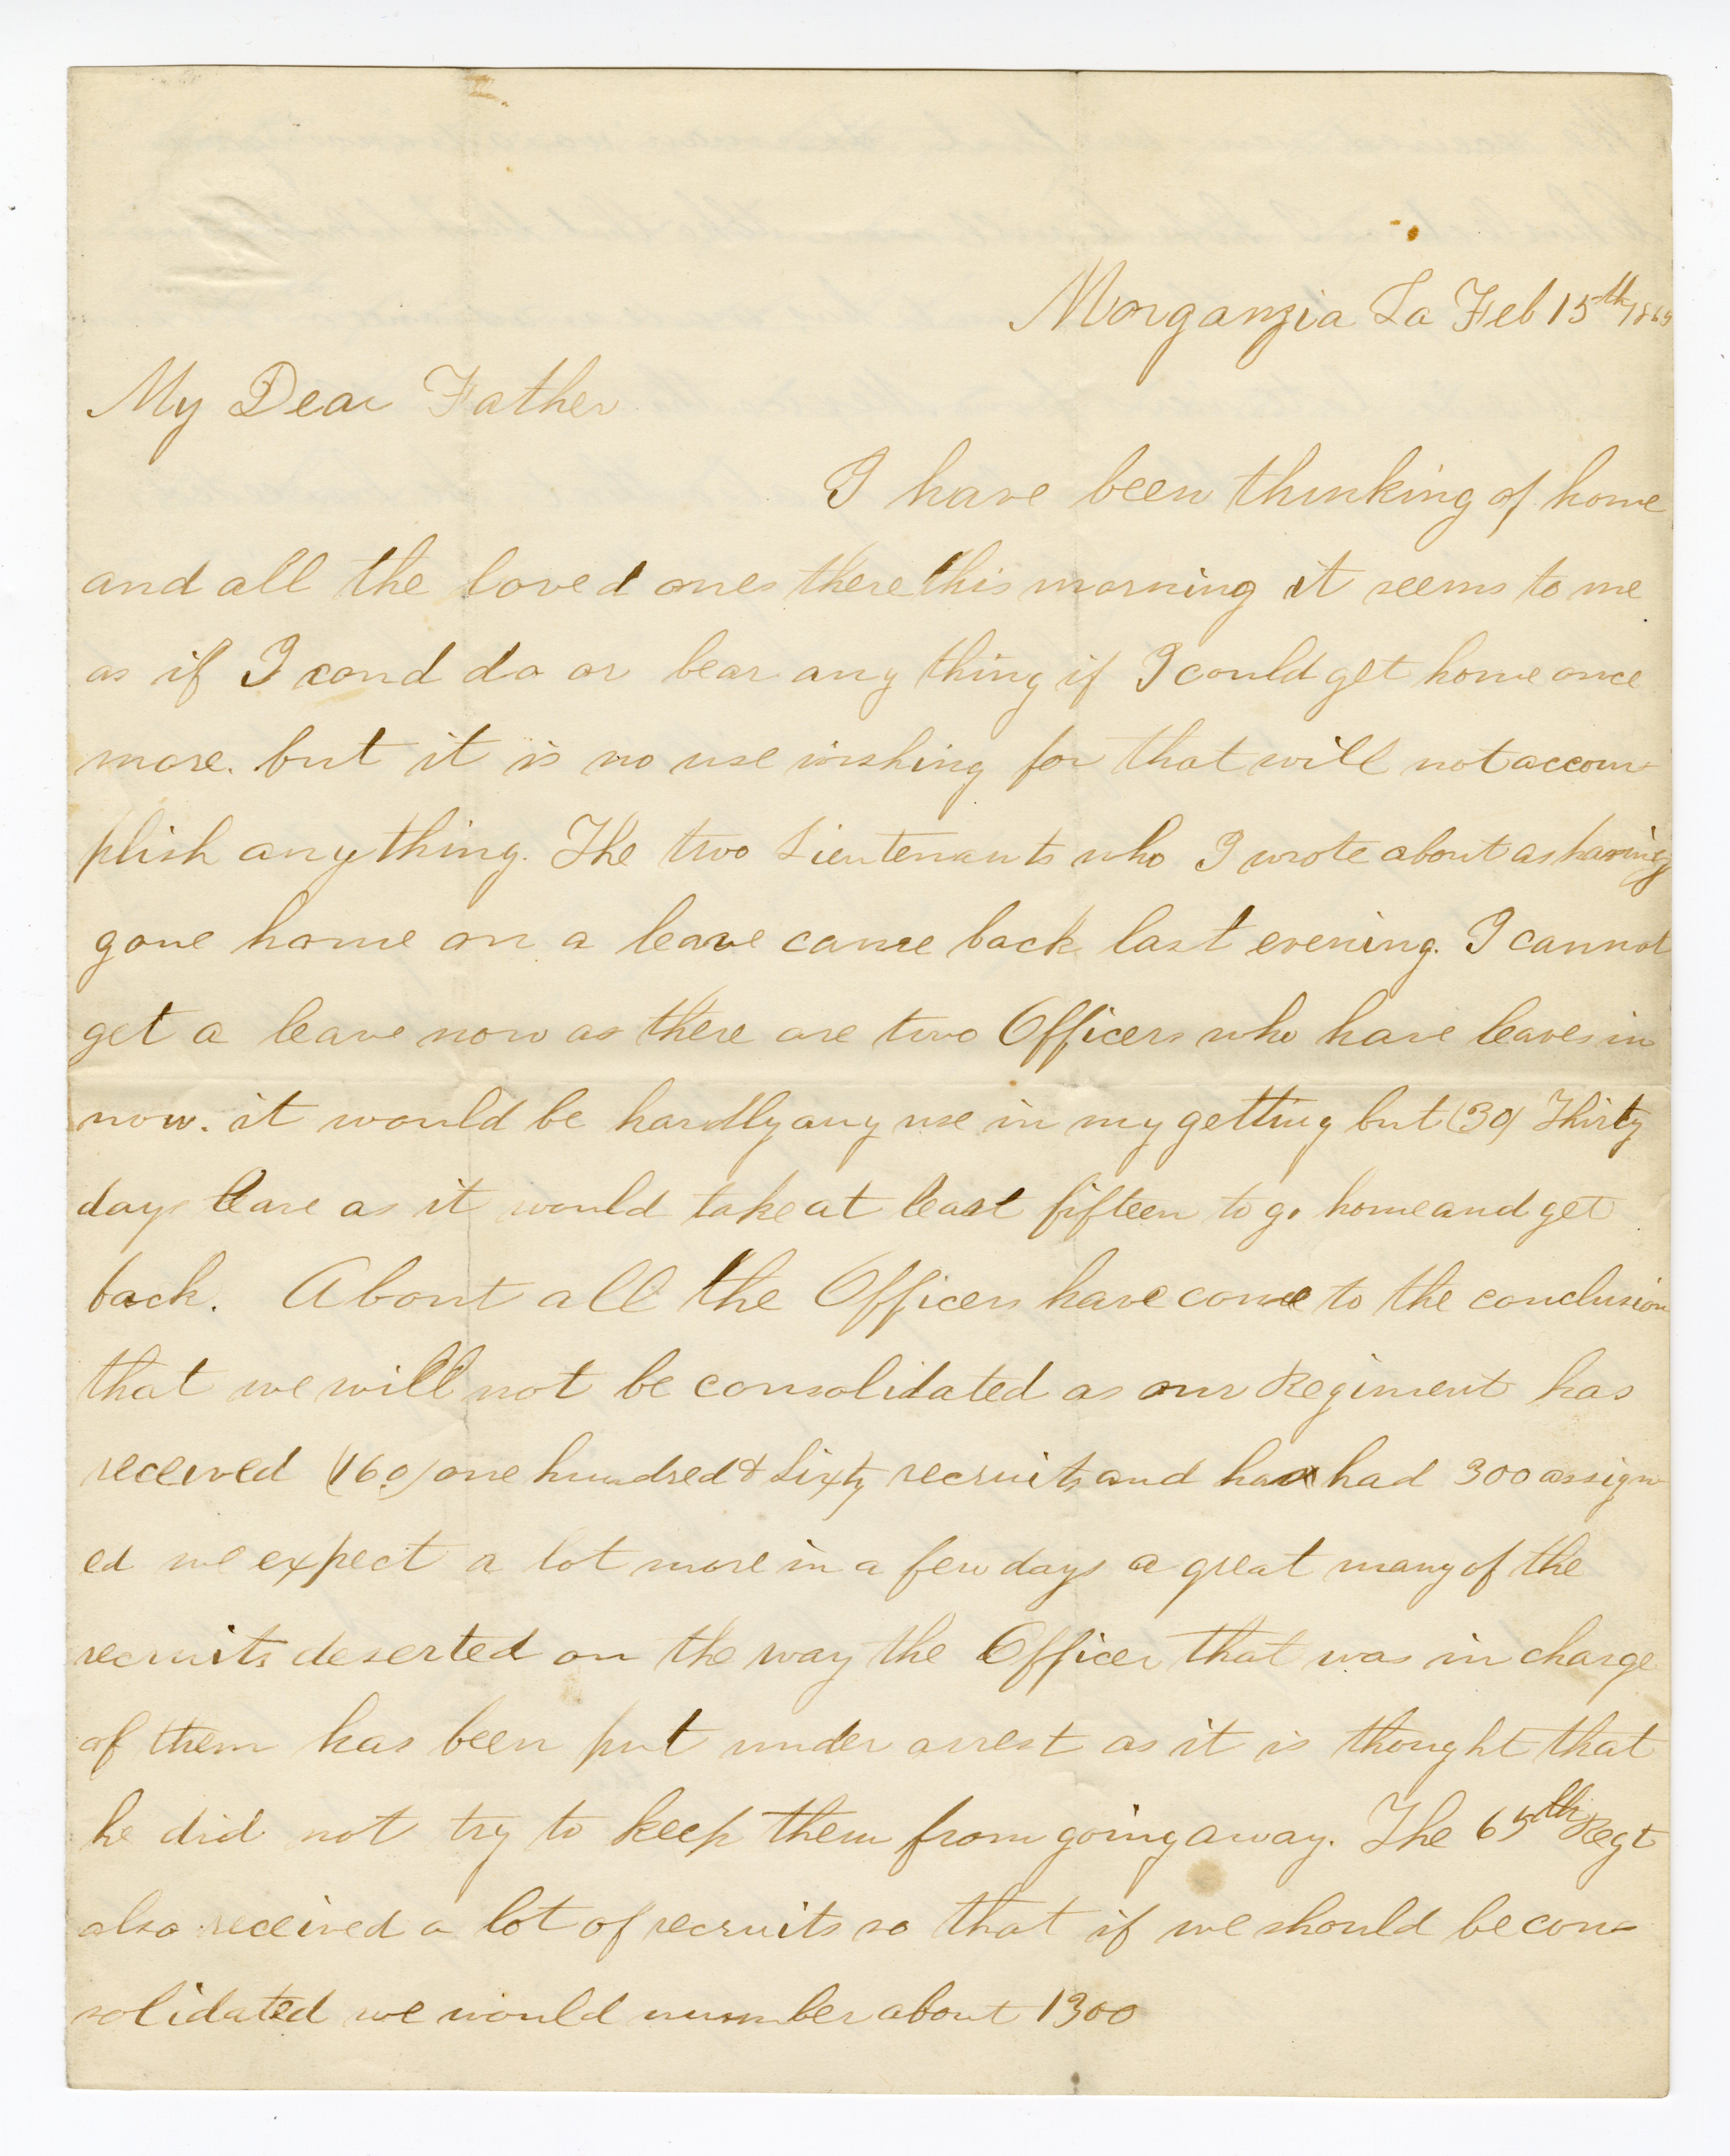 Morganzia La Feb 15th/1865
My Dear Father
I have been thinking of home
and all the loved ones there this morning it seems to me
as if I cond do or bear any thing if I could get home once
more. but it is no use wishing for that will not accom-
plish anything. The two Lieutenants who I wrote about as having
gone home on a leave came back last evening. I cannot
get a leave now as there are two Officers who have leaves in
now. it would be hardly any use in my getting but (30) Thirty
days leave as it would take at least fifteen to go home and get
back. About all the Officers have come to the conclusion
that we will not be consolidated as our Regiment has
received (160) one hundred & Sixty recruits and has had 300 assign-
ed we expect a lot more in a few days a great many of the
recruits deserted on the way the Officer that was in charge
of them has been put under arrest as it is thought that
he did not try to keep them from going away. The 65th Regt
also received a lot of recruits so that if we should be con-
solidated we would number about 1300